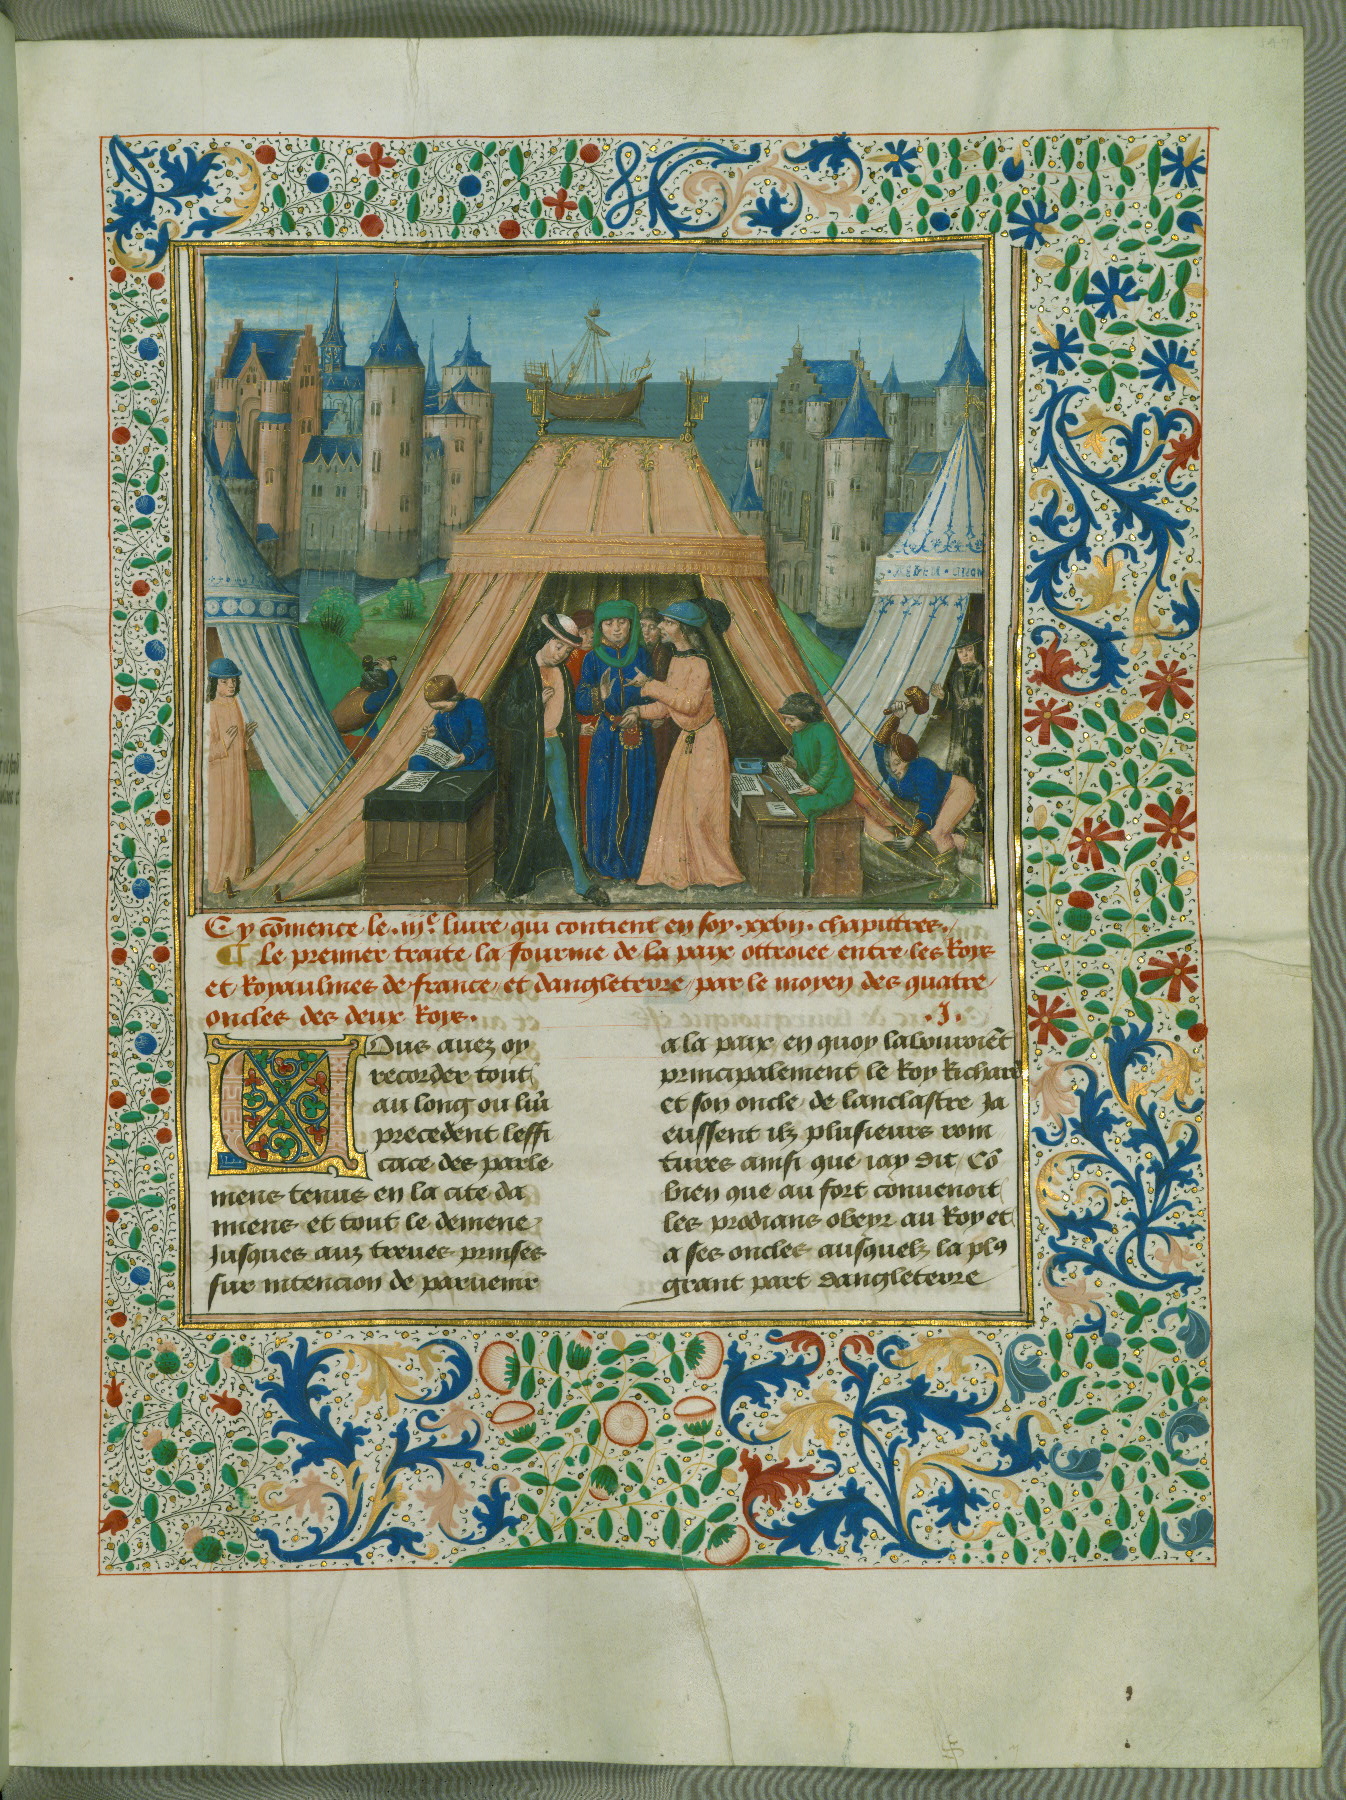 Cy cōmence le .iiiᵉ. liure qui contient en soy .xxvii. chapittres.
¶ Le premier traite la fourme de la paix ottroiee entre les Roys
et Royaulmes de france et dangleterre par le moyen des quatre
oncles des deux Roys. .I.
Vous auez oy
recorder tout
au long ou liure
precedent leffi
cace des parle
mens tenus en la cite da
miens et tout le demene
Jusques aux treues prinses
sur intencion de paruenir
a la paix en quoy labouroiēt
principalement le Roy Richard
et son oncle de lanclastre Ja
eussent ilz plusieurs rom
tures ainsi que iay dit / Cō
bien que au fort conuenoit
les prodians obeyr au Roy et
a ses oncles ausquelz la plꝰ
grant part dangleterre